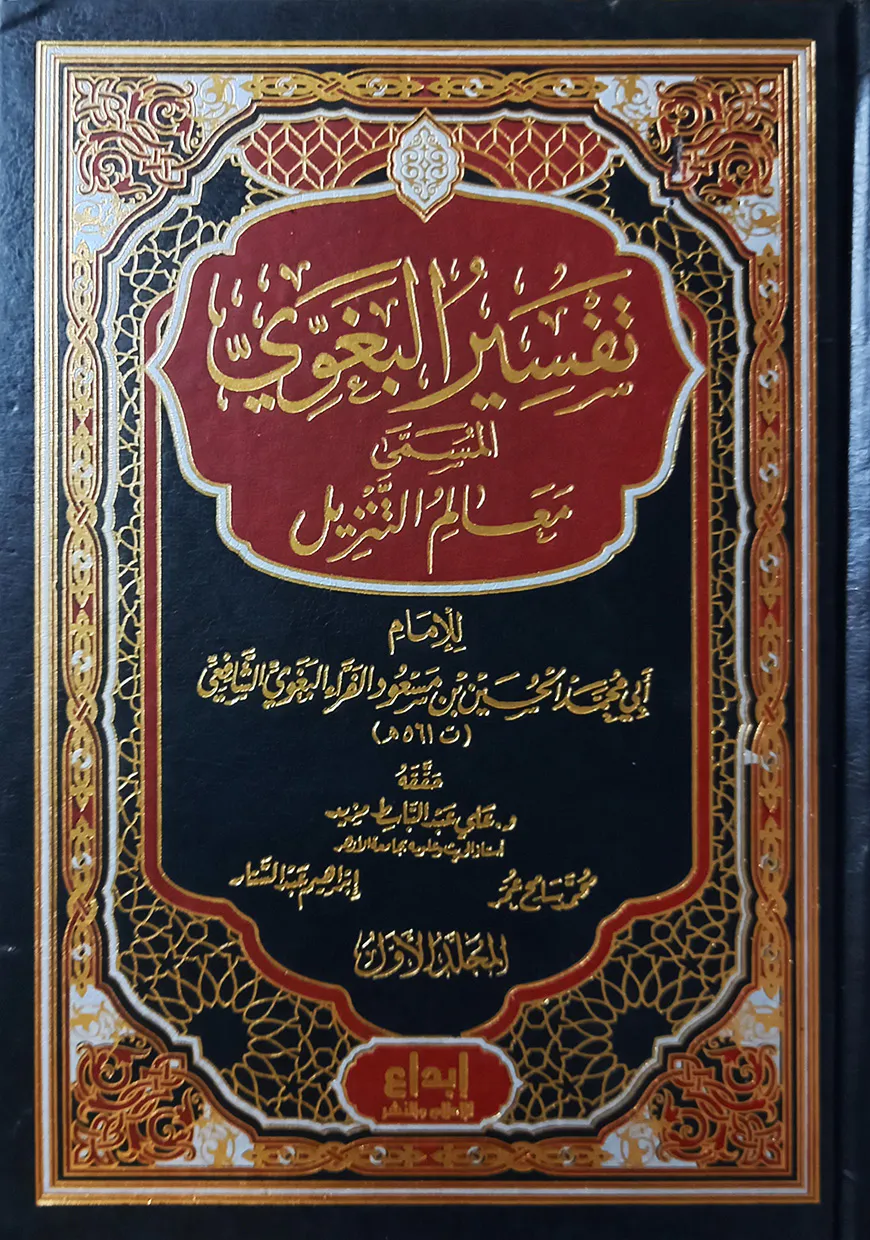 تَفْسِيرُ البَغَوِيِّ
المُسَمَّى
مَعَالِمُ التَّنْزِيل
لِلْإِمَام
أَبِي مُحَمَّد الحُسَيْن بْن مَسْعُود الفَرَّاء البَغَوِيّ الشَّافِعِيّ
(ت ٥٦١هـ)
حَقَّقَهُ
د. علي عبد الباسط مزيد
أستاذ الحديث وعلومه بجامعة الأزهر
محمَّد سامح عُمر
إبْرَاهيم عَبْد السَّتار
المُجَلَّد الأَوَّلُ
إبداع
للإعلام والنشر